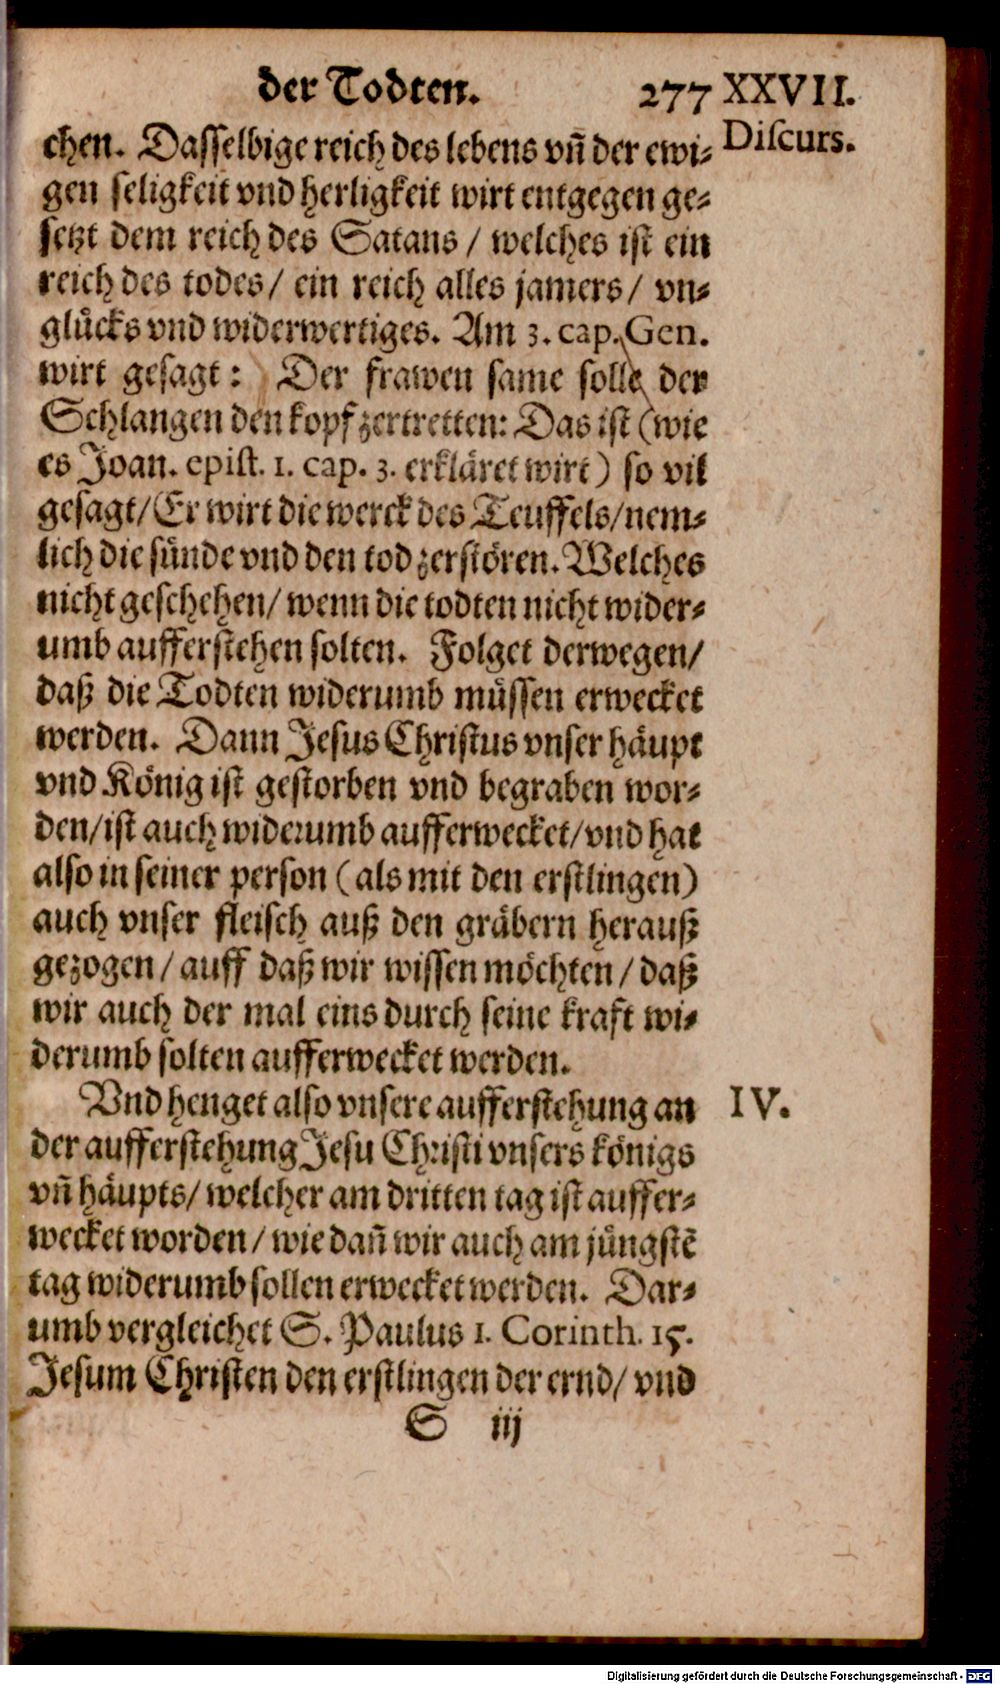 der Todten. 277 XXVII.
Discurs.
chen. Dasselbige reich des lebens vñ der ewi-
gen seligkeit vnd herligkeit wirt entgegen ge-
setzt dem reich des Satans / welches ist ein
reich des todes / ein reich alles jamers / vn-
glücks vnd widerwertiges. Am 3. cap. Gen.
wirt gesagt: Der frawen same solle der
Schlangen den kopf zertretten: Das ist (wie
es Joan. epist. 1. cap. 3. erkläret wirt) so vil
gesagt / Er wirt die werck des Teuffels / nem-
lich die sünde vnd den tod zerstören. Welches
nicht geschehen / wenn die todten nicht wider-
umb aufferstehen solten. Folget derwegen /
daß die Todten widerumb müssen erwecket
werden. Dann Jesus Christus vnser häupt
vnd König ist gestorben vnd begraben wor-
den / ist auch widerumb aufferwecket / vnd hat
also in seiner person (als mit den erstlingen)
auch vnser fleisch auß den gräbern herauß
gezogen / auff daß wir wissen möchten / daß
wir auch der mal eins durch seine kraft wi-
derumb solten aufferwecket werden.
Vnd henget also vnsere aufferstehung an IV.
der aufferstehung Jesu Christi vnsers königs
vñ häupts / welcher am dritten tag ist auffer-
wecket worden / wie dañ wir auch am jüngstē
tag widerumb sollen erwecket werden. Dar-
umb vergleichet S. Paulus 1. Corinth. 15.
Jesum Christen den erstlingen der ernd / vnd
S iij
Digitalisierung gefördert durch die Deutsche Forschungsgemeinschaft - DFG